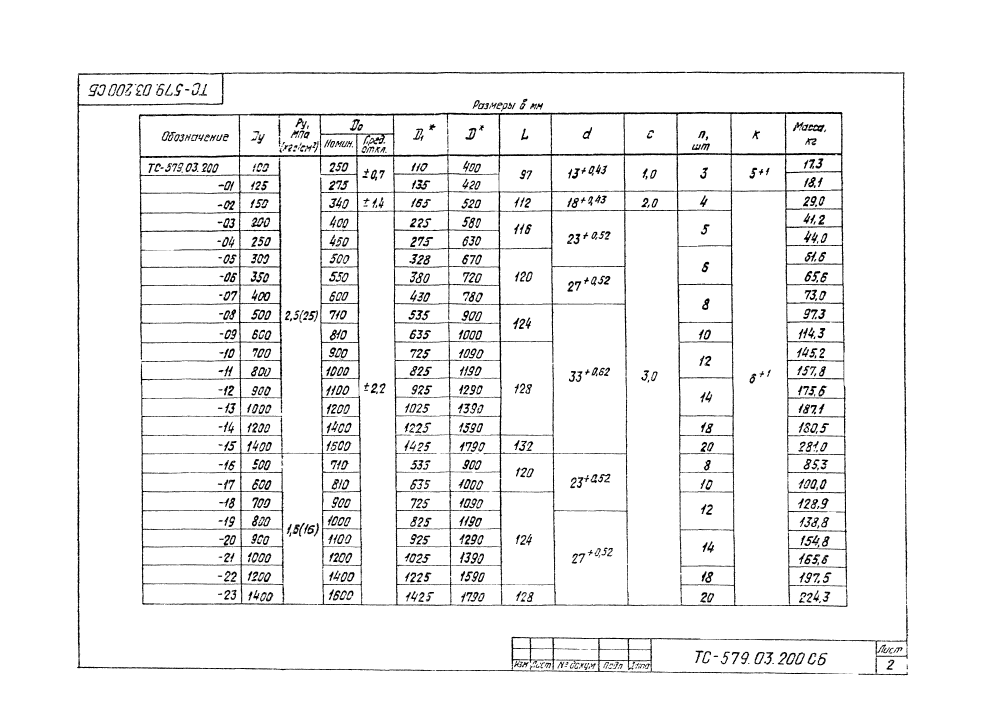 ТС-579.03.200СБ
Размеры в мм
Обозначение Dу Ру, МПа (кгс/см²) D₀ D₁* D* L d c n, шт K Масса, кг
Номин. Пред. откл.
ТС-579.03.200 100 2,5(25) 250 ±0,7 110 400 97 13+0,43 1,0 3 5+1 17,3
-01 125 275 135 420 18,1
-02 150 340 ±1,4 165 520 112 18+0,43 2,0 4 6+1 29,0
-03 200 400 ±2,2 225 580 116 23+0,52 3,0 5 41,2
-04 250 450 275 630 44,0
-05 300 500 328 670 120 6 61,6
-06 350 550 380 720 27+0,52 65,6
-07 400 600 430 780 8 73,0
-08 500 710 535 900 124 33+0,62 97,3
-09 600 810 635 1000 10 114,3
-10 700 900 725 1090 128 12 145,2
-11 800 1000 825 1190 157,8
-12 900 1100 925 1290 14 175,6
-13 1000 1200 1025 1390 187,1
-14 1200 1400 1225 1590 18 180,5
-15 1400 1600 1425 1790 132 20 281,0
-16 500 1,6(16) 710 535 900 120 23+0,52 8 85,3
-17 600 810 635 1000 10 100,0
-18 700 900 725 1090 124 12 128,9
-19 800 1000 825 1190 27+0,52 138,8
-20 900 1100 925 1290 14 154,8
-21 1000 1200 1025 1390 165,6
-22 1200 1400 1225 1590 18 197,5
-23 1400 1600 1425 1790 128 20 224,3
Изм Лист № докум Подп. Дата
ТС-579.03.200СБ
Лист
2